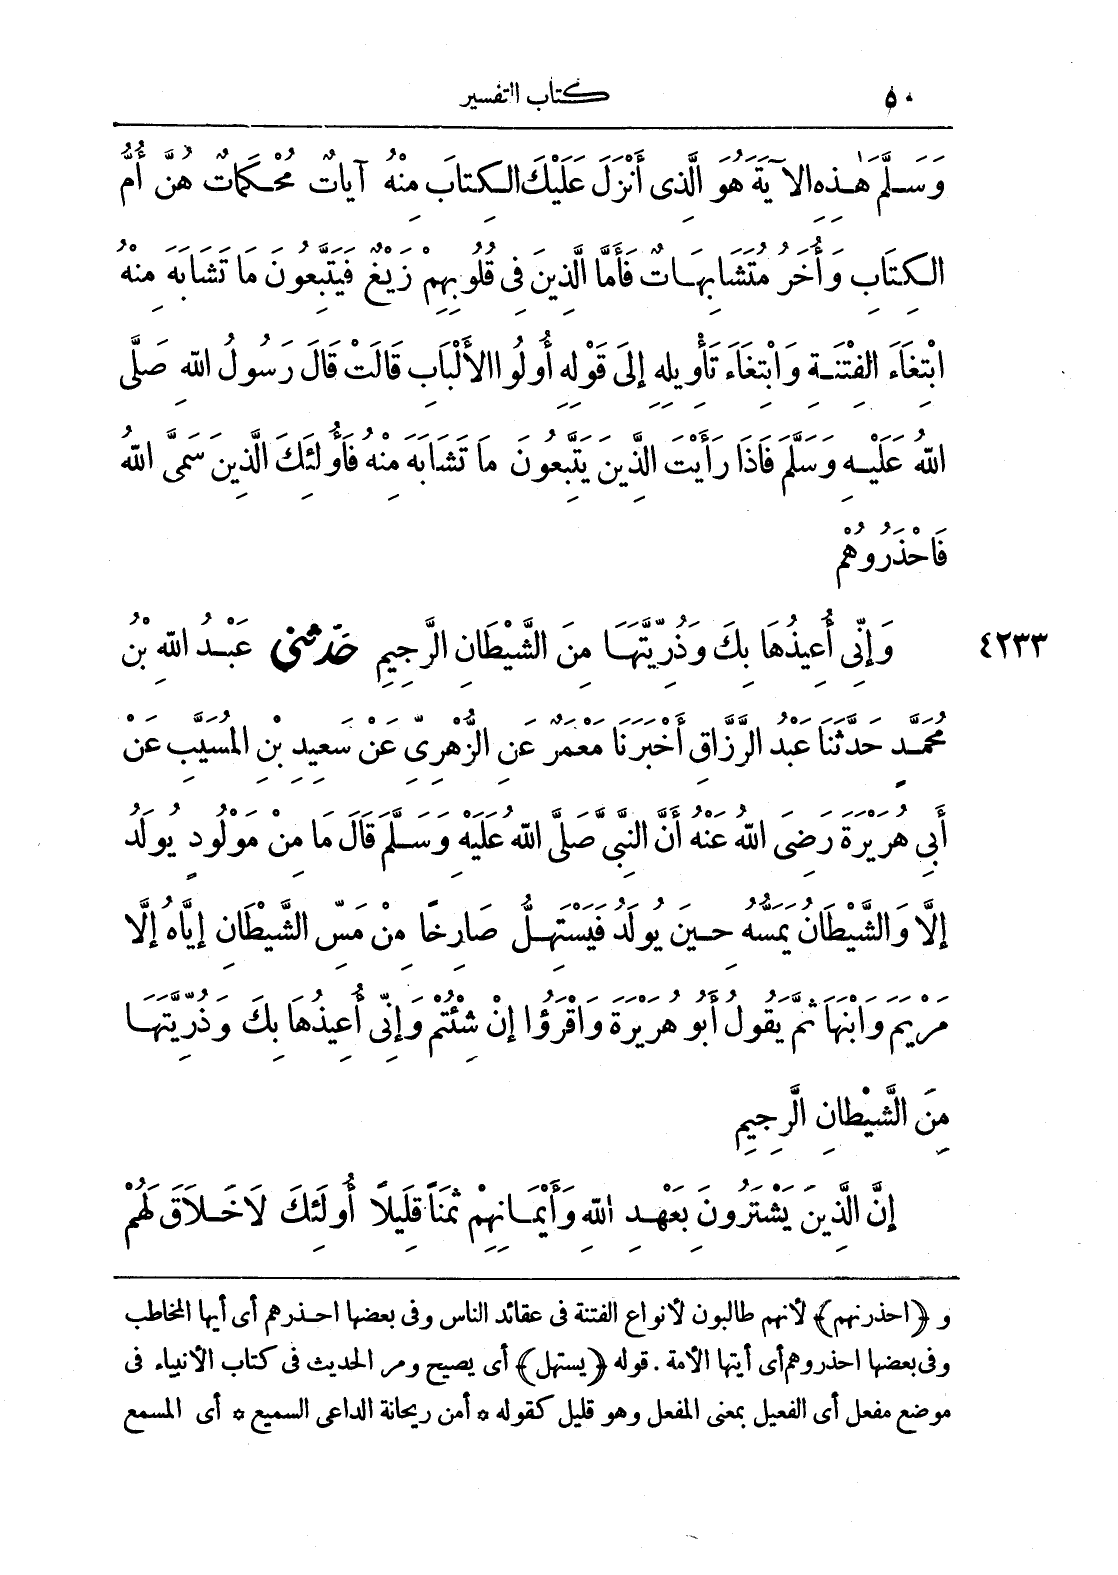 ٥٠ كتاب التفسير
وَسَلَّمَ هٰذِهِ الآيَةَ هُوَ الَّذِى أَنْزَلَ عَلَيْكَ الكِتابَ مِنْهُ آيَاتٌ مُحْكَمَاتٌ هُنَّ أُمُّ
الكِتَابِ وَأُخَرُ مُتَشَابِهَاتٌ فَأَمَّا الَّذِينَ فِى قُلُوبِهِمْ زَيْغٌ فَيَتَّبِعُونَ مَا تَشَابَهَ مِنْهُ
ابْتِغَاءَ الفِتْنَةِ وَابْتِغَاءَ تَأْوِيلِهِ إِلَى قَوْلِهِ أُولُو الأَلْبَابِ قَالَتْ قَالَ رَسُولُ اللهِ صَلَّى
اللهُ عَلَيْهِ وَسَلَّمَ فَاذَا رَأَيْتِ الَّذِينَ يَتَّبِعُونَ مَا تَشَابَهَ مِنْهُ فَأُولَئِكَ الَّذِينَ سَمَّى اللهُ
فَاحْذَرُوهُمْ
٤٢٣٣ وَإِنِّى أُعِيذُهَا بِكَ وَذُرِّيَّتَهَا مِنَ الشَّيْطَانِ الرَّجِيمِ حَدَّثَنِى عَبْدُ اللهِ بْنُ
مُحَمَّدٍ حَدَّثَنَا عَبْدُ الرَّزَّاقِ أَخْبَرَنَا مَعْمَرٌ عَنِ الزُّهْرِىِّ عَنْ سَعِيدِ بْنِ المُسَيَّبِ عَنْ
أَبِى هُرَيْرَةَ رَضِىَ اللهُ عَنْهُ أَنَّ النَّبِىَّ صَلَّى اللهُ عَلَيْهِ وَسَلَّمَ قَالَ مَا مِنْ مَوْلُودٍ يُولَدُ
إِلَّا وَالشَّيْطَانُ يَمَسُّهُ حِينَ يُولَدُ فَيَسْتَهِلُّ صَارِخًا مِنْ مَسِّ الشَّيْطَانِ إِيَّاهُ إِلَّا
مَرْيَمَ وَابْنَهَا ثُمَّ يَقُولُ أَبُو هُرَيْرَةَ وَاقْرَؤُا إِنْ شِئْتُمْ وَإِنِّى أُعِيذُهَا بِكَ وَذُرِّيَّتَهَا
مِنَ الشَّيْطَانِ الرَّجِيمِ
إِنَّ الَّذِينَ يَشْتَرُونَ بِعَهْدِ اللهِ وَأَيْمَانِهِمْ ثَمَنًا قَلِيلًا أُولَئِكَ لَا خَلَاقَ لَهُمْ
و ﴿احذرنهم﴾ لأنهم طالبون لأنواع الفتنة فى عقائد الناس وفى بعضها احذرهم أى أيها المخاطب
وفى بعضها احذروهم أى أيتها الأمة . قوله ﴿يستهل﴾ أى يصيح ومر الحديث فى كتاب الأنبياء فى
موضع مفعل أى الفعيل بمعنى المفعل وهو قليل كقوله * أمن ريحانة الداعى السميع * أى المسمع